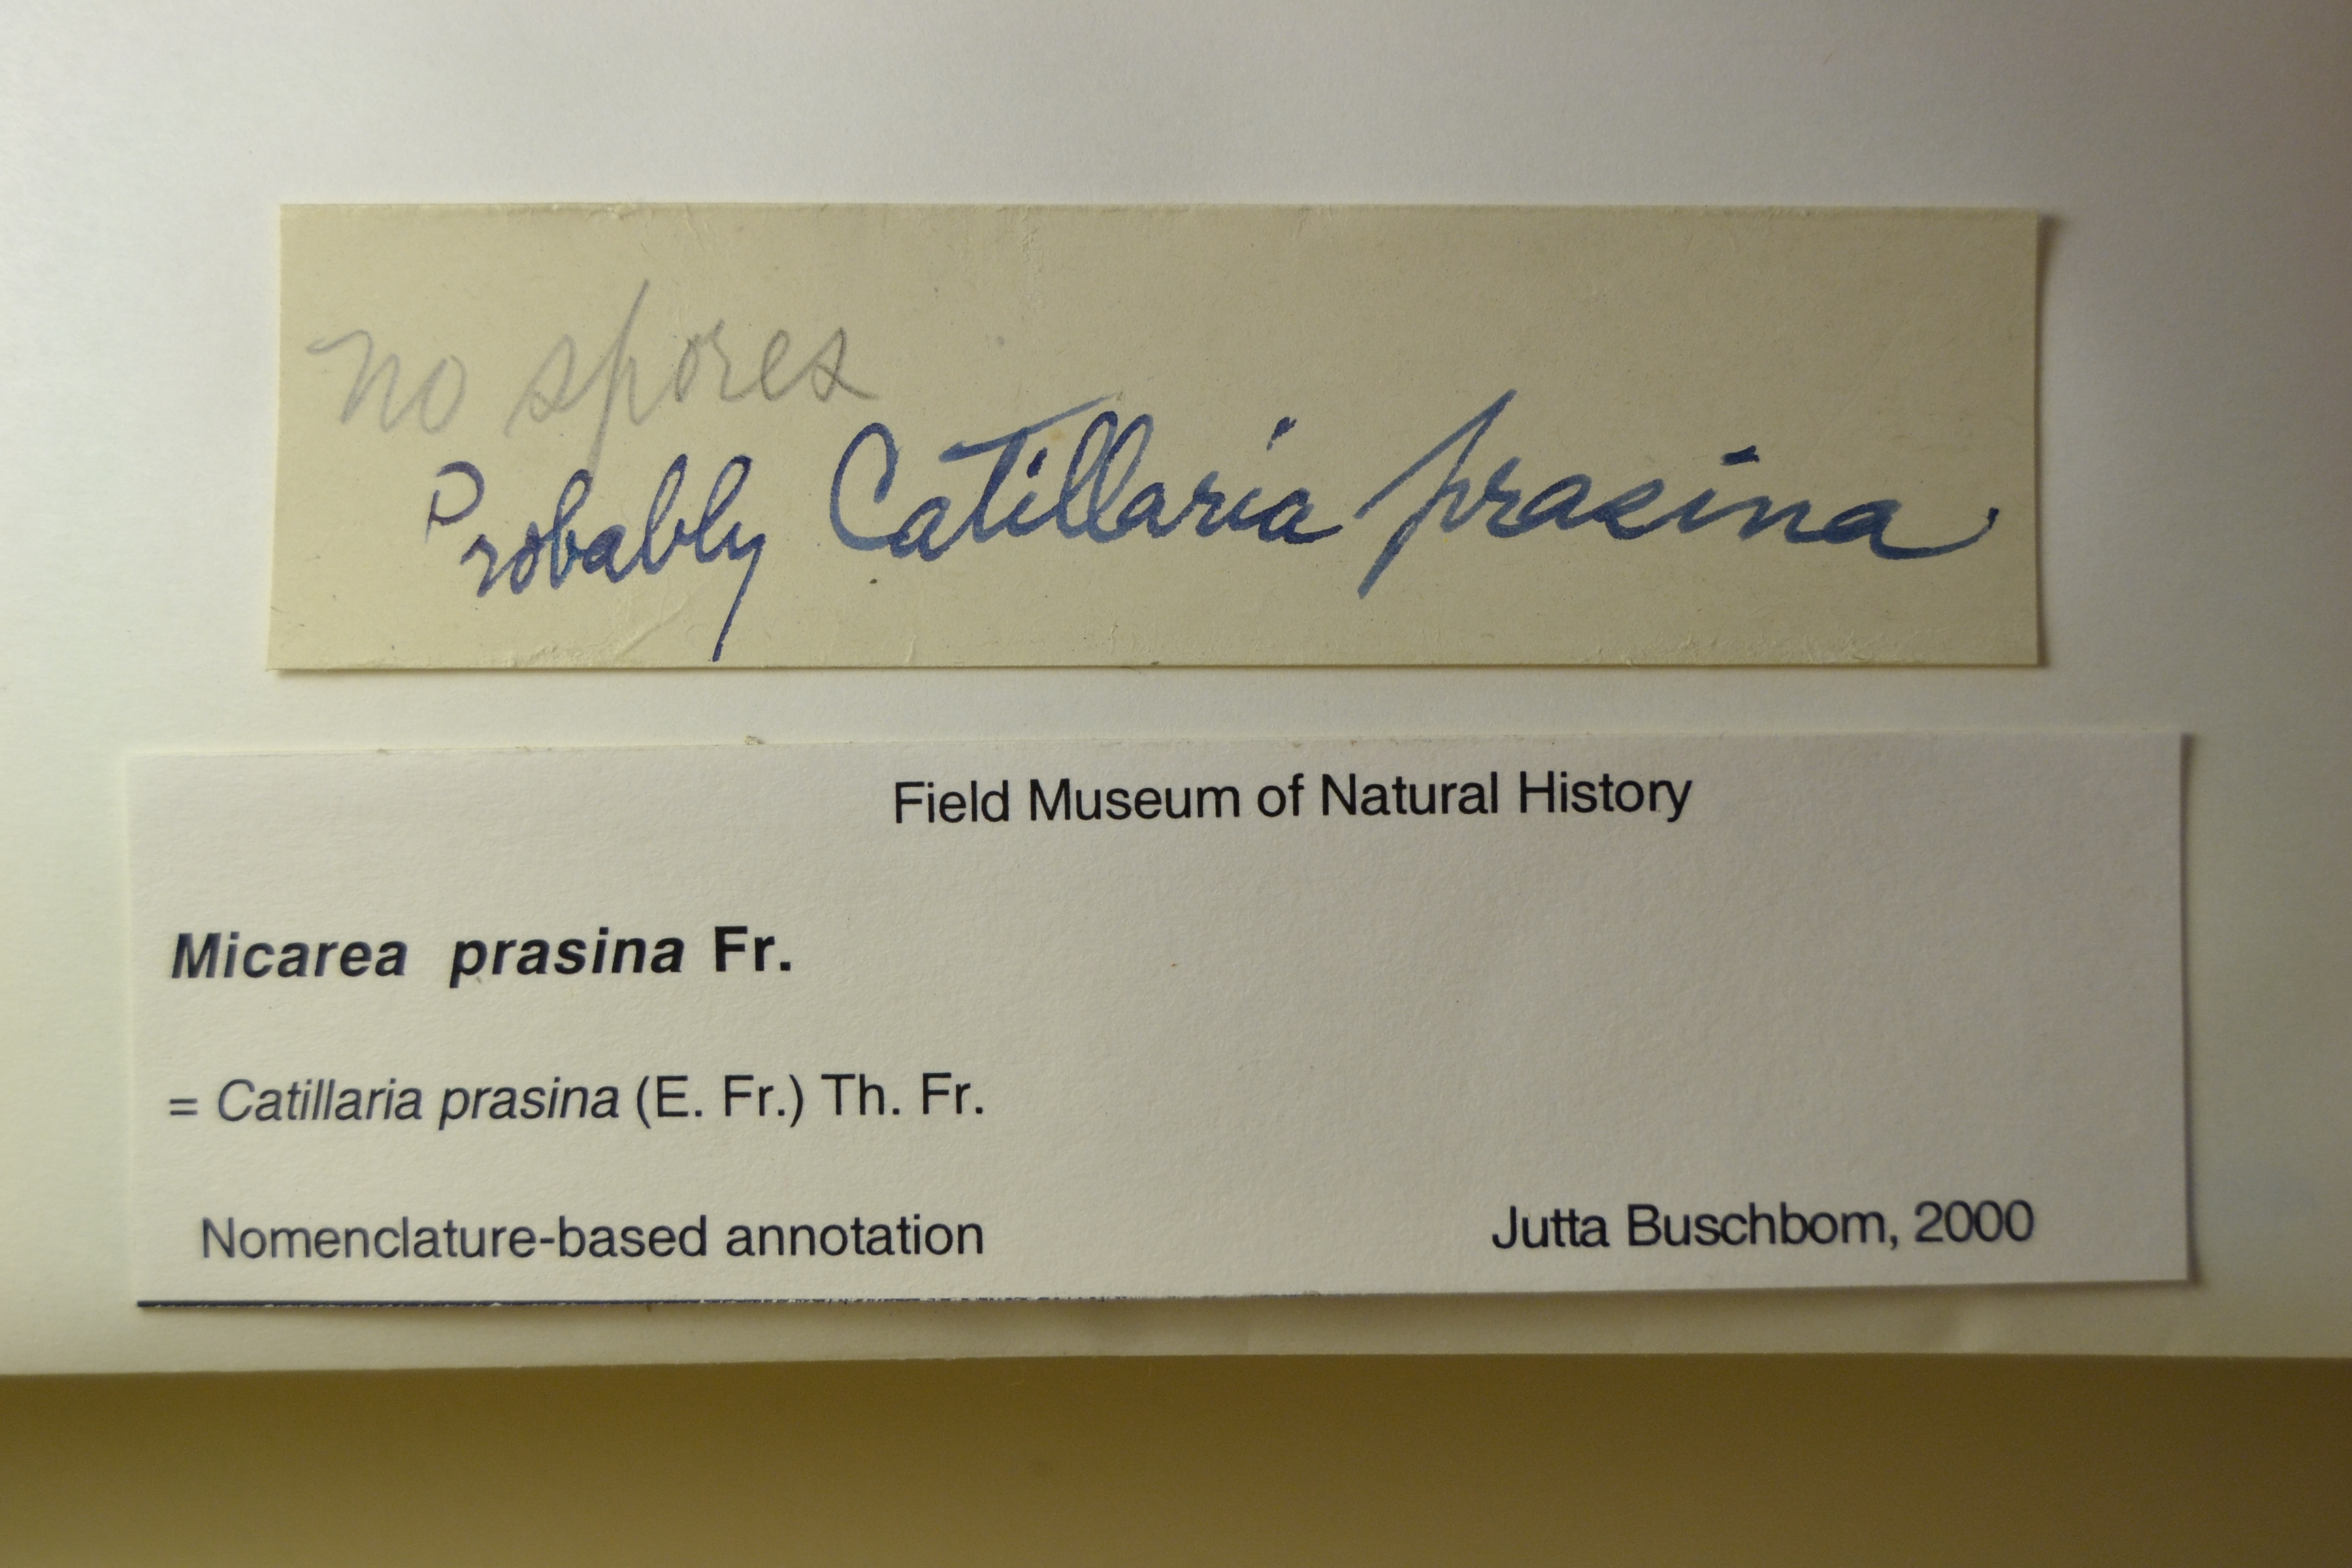 no spores
Probably Catillaria prasina
Field Museum of Natural History
Micarea prasina Fr.
= Catillaria prasina (E. Fr.) Th. Fr.
Nomenclature-based annotation Jutta Buschbom, 2000